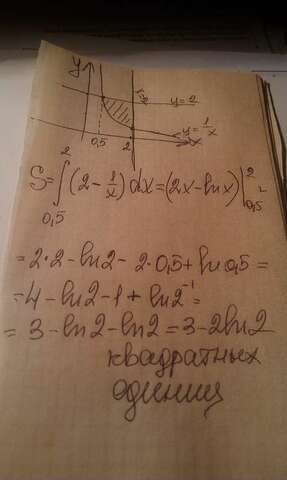 y
x=2
y=2
y=1/x
0,5
2
x
S=∫₀,₅² (2 - 1/x) dx = (2x - ln x) |₀,₅² =
= 2·2 - ln2 - 2·0,5 + ln0,5 =
= 4 - ln2 - 1 + ln2⁻¹ =
= 3 - ln2 - ln2 = 3 - 2ln2
квадратных
единиц